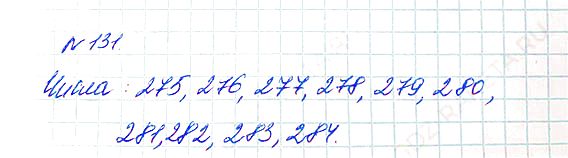 № 131.
Числа: 275, 276, 277, 278, 279, 280,
281, 282, 283, 284.